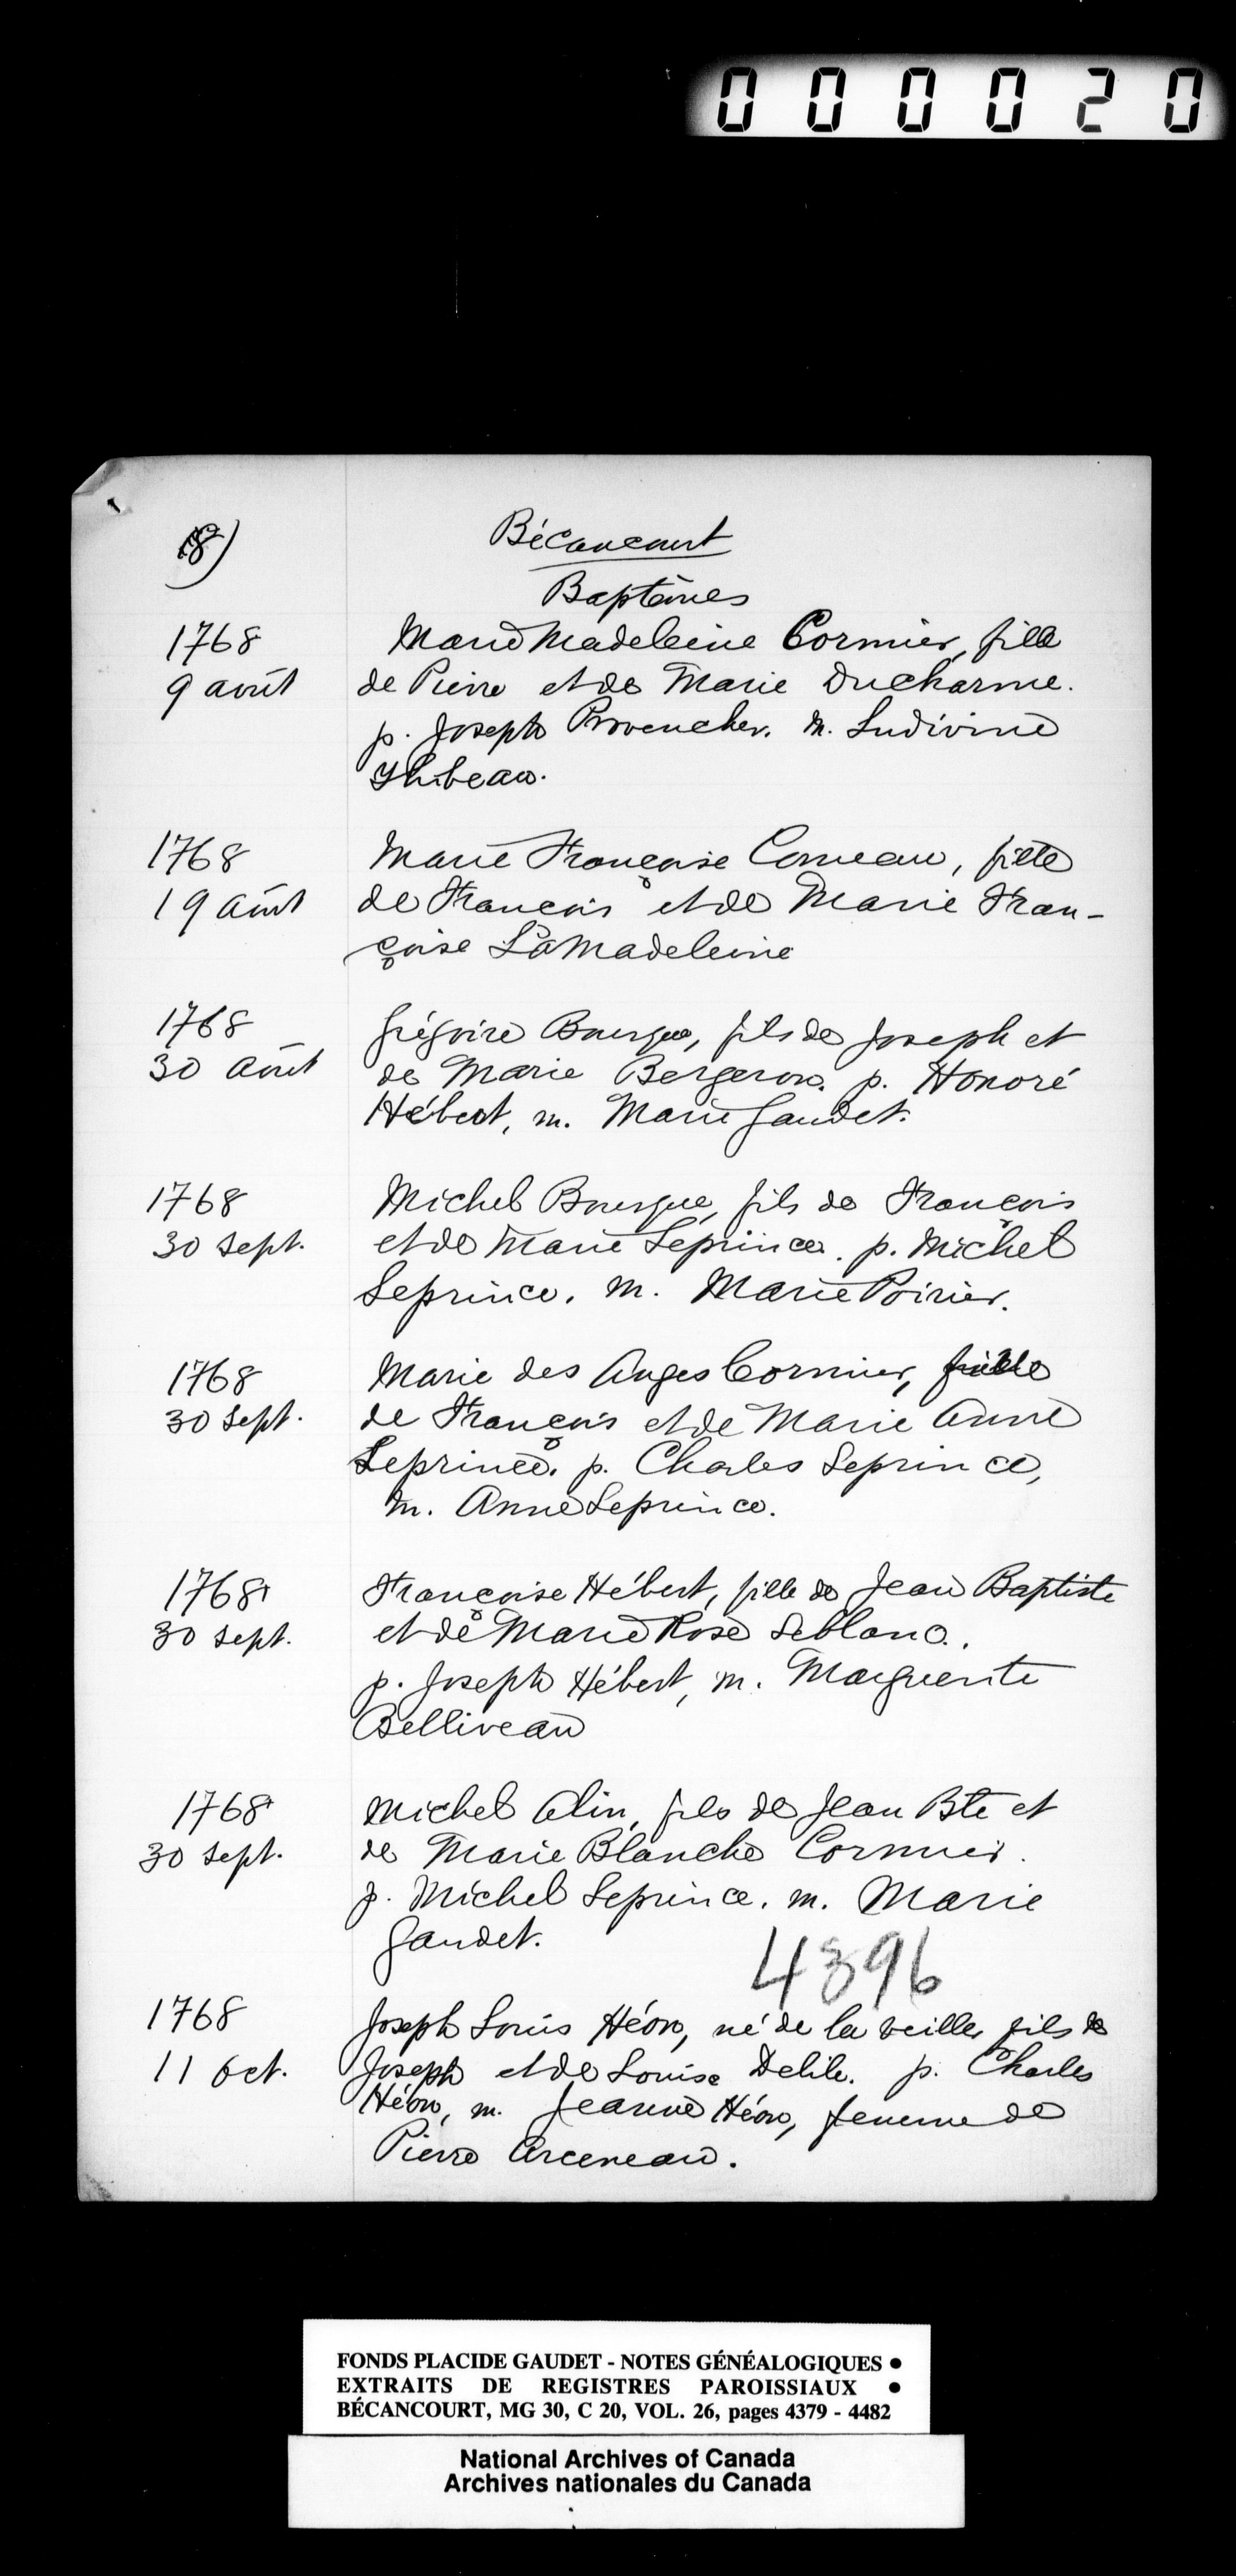 000020
18)
Bécancourt
Baptêmes
1768
9 août
Marie Madeleine Cormier, fille
de Pierre et de Marie Ducharme.
p. Joseph Provencher. m. Ludivine
Thibeau.
1768
19 août
Marie Françoise Comeau, fille
de François et de Marie Fran-
çoise La Madeleine
1768
30 août
Grégoire Bourque, fils de Joseph et
de Marie Bergeron. p. Honoré
Hébert, m. Marie Gaudet.
1768
30 sept.
Michel Bourque, fils de François
et de Marie Leprince. p. Michel
Leprince. m. Marie Poirier.
1768
30 sept.
Marie des Anges Cormier, fille
de François et de Marie Anne
Leprince. p. Charles Leprince,
m. Anne Leprince.
1768
30 sept.
Françoise Hébert, fille de Jean Baptiste
et de Marie Rose Leblanc.
p. Joseph Hébert, m. Marguerite
Belliveau
1768
30 sept.
Michel Alin, fils de Jean Bte et
de Marie Blanche Cormier.
p. Michel Leprince. m. Marie
Gaudet.
4396
1768
11 oct.
Joseph Louis Héon, né de la veille, fils de
Joseph et de Louise Delile. p. Charles
Héon, m. Jeanne Héon, femme de
Pierre Arceneau.
FONDS PLACIDE GAUDET - NOTES GÉNÉALOGIQUES ●
EXTRAITS DE REGISTRES PAROISSIAUX ●
BÉCANCOURT, MG 30, C 20, VOL. 26, pages 4379 - 4482
National Archives of Canada
Archives nationales du Canada